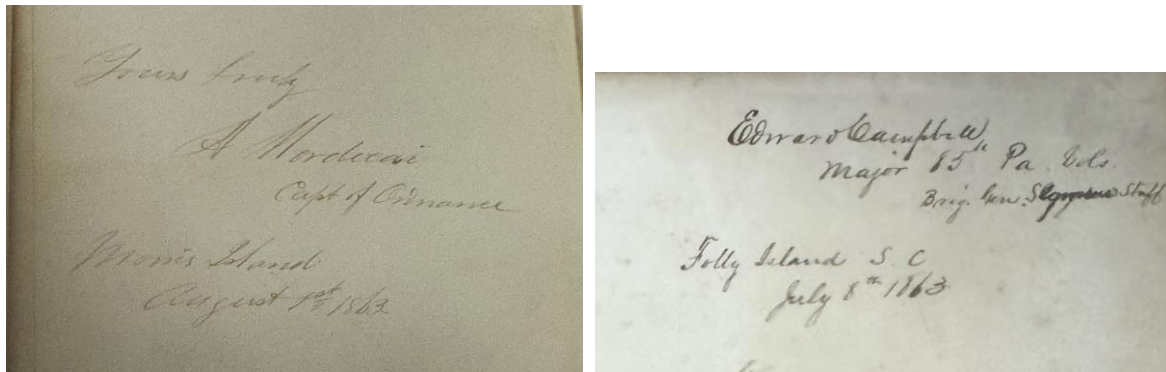 Yours truly
A Mordecai
Capt of Ordnance
Morris Island
August 1st 1863
Edward Campbell,
Major 85th Pa. Vols.
Brig. Gen. Seymour Staff
Folly Island S. C
July 8th 1863